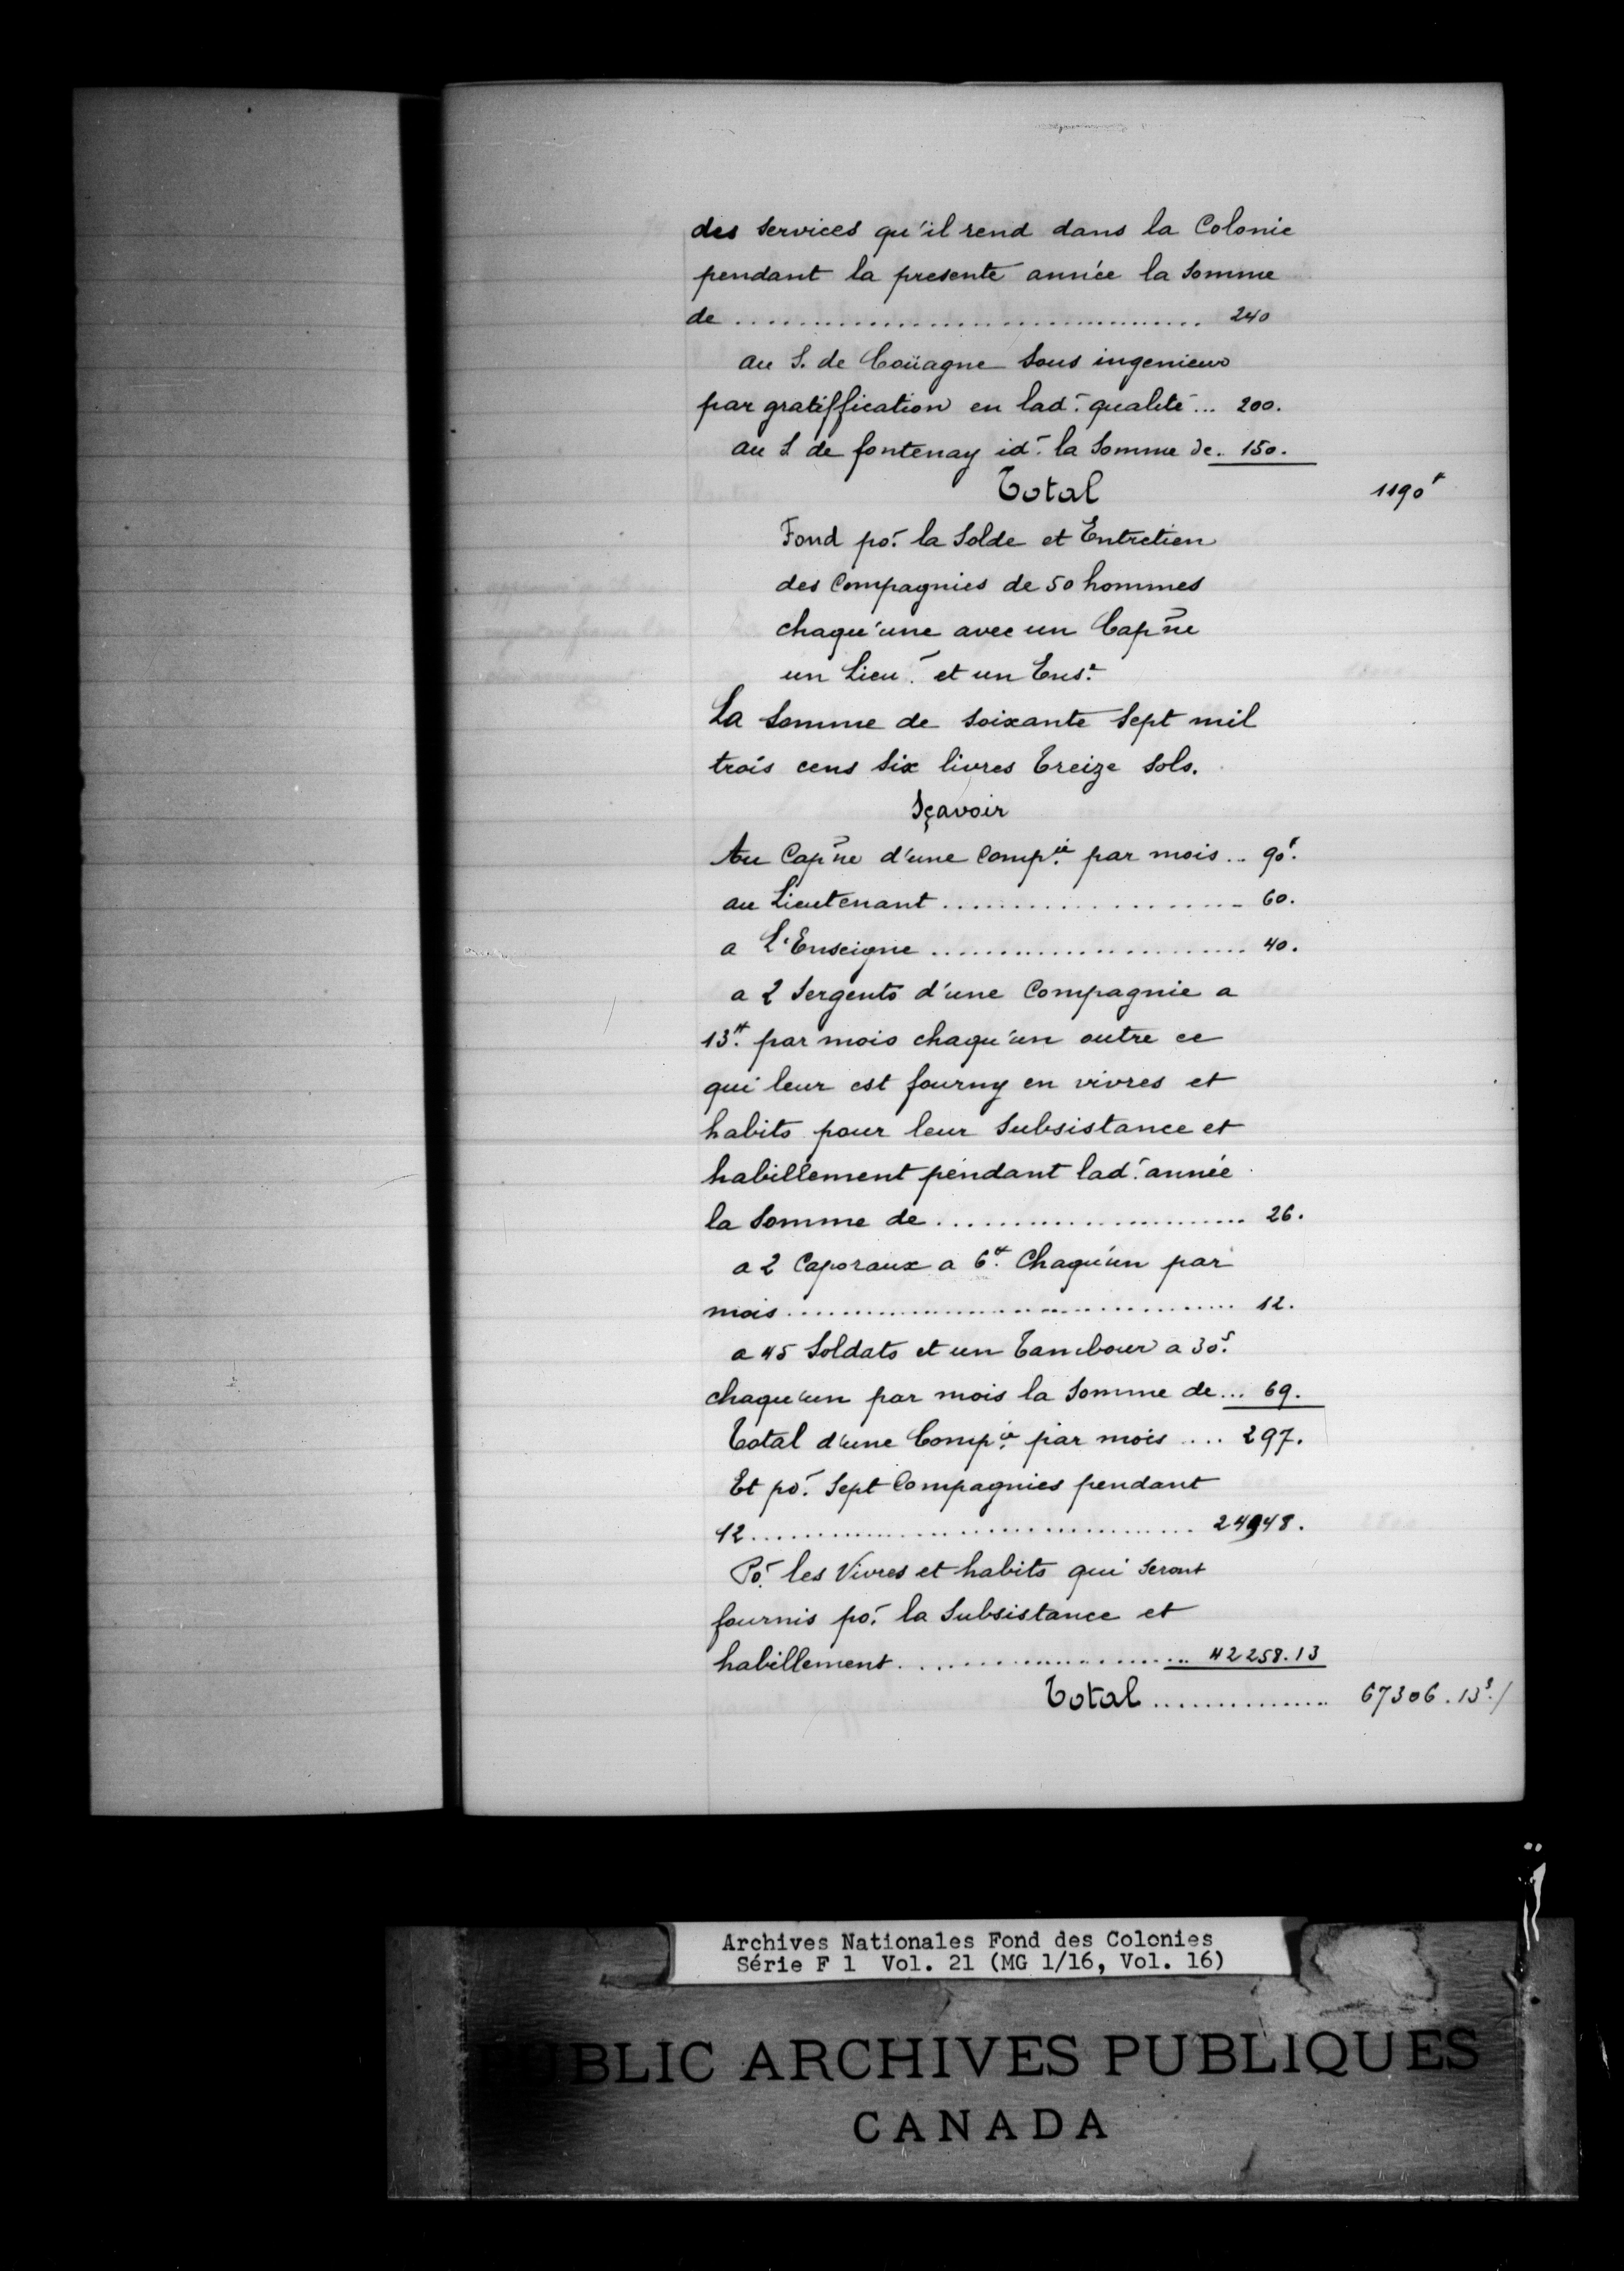 des services qu'il rend dans la Colonie
pendant la presente année la somme
de ................................ 240
au S. de Coüagne Sous ingenieur
par gratiffication en lad. qualité ... 200.
au S de fontenay id. la Somme de . 150.
Total 1190#
Fond po. la Solde et Entretien
des Compagnies de 50 hommes
chaqu'une avec un Capne
un Lieu. et un Ens.
La Somme de soixante sept mil
trois cens six livres treize sols.
Sçavoir
Au Capne d'une Compie par mois ... 90#.
au Lieutenant .................... 60.
a L'Enseigne ...................... 40.
a 2 Sergents d'une Compagnie a
13# par mois chaqu'un outre ce
qui leur est fourny en vivres et
habits pour leur Subsistance et
habillement pendant lad. année
la Somme de ....................... 26.
a 2 Caporaux a 6# Chaqu'un par
mois ................................ 12.
a 45 Soldats et un Tambour a 30s.
chaqu'un par mois la Somme de ... 69.
Total d'une Compie par mois .... 297.
Et po. Sept Compagnies pendant
12 ................................ 24948.
Po. les Vivres et habits qui seront
fournis po. la Subsistance et
habillement ..................... 42258.13
Total ............... 67306.13s./
Archives Nationales Fond des Colonies
Série F 1 Vol. 21 (MG 1/16, Vol. 16)
PUBLIC ARCHIVES PUBLIQUES
CANADA